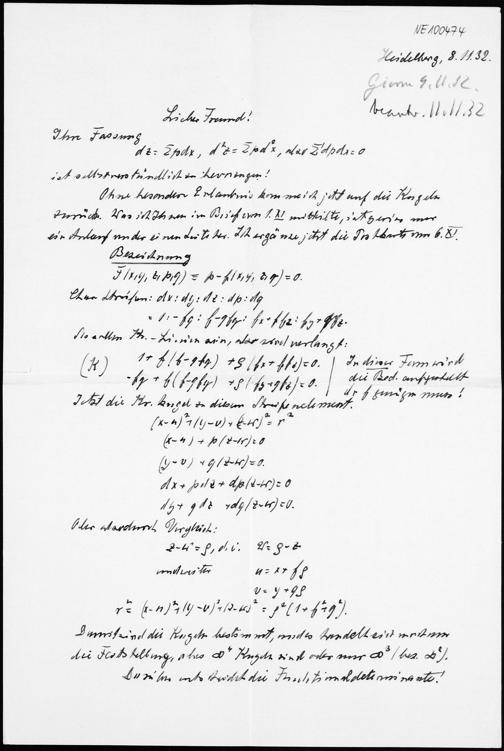 NE100474
Heidelberg, 8.11.32.
9.11.32.
beantw. 11.11.32
Lieber Freund!
Ihre Fassung
dz = Σpdx, d²z = Σpd²x, also Σdpdx = 0
ist selbstverständlich
Ohne besondere Erlaubnis komme ich jetzt auf die Kugeln
zurück. Was ich Ihnen im Brief vom 1. XI mitteilte, ist nur
ein Anlauf von einer Seite her. Ich ergänze jetzt die Postkarte vom 6. XI.
Bezeichnung
F(x,y,z,p,q) ≡ p - f(x,y,z,q) = 0.
Char. Streifen: dx : dy : dz : dp : dq
= 1 : -fq : f-qfq : fx+ffz : fy+qfz.
Sie sollen Kr.-Linien sein, also wird verlangt:
(K) 1 + f(f-qfq) + ρ(fx+ffz) = 0.
-fq + q(f-qfq) + ρ(fy+qfz) = 0.
In dieser Form wird
die Bed. aufgestellt
der f genügen muss!
Jetzt die Kr. Kugel zu diesem Streifenelement.
(x-u)²+(y-v)²+(z-w)² = r²
(x-u) + p(z-w) = 0
(y-v) + q(z-w) = 0.
dx + pdz + dp(z-w) = 0
dy + qdz + dq(z-w) = 0.
Also durch Vergleich:
z-w = ρ, d.i.
und weiter u = x + fρ
v = y + qρ
r² = (x-u)²+(y-v)²+(z-w)² = ρ²(1+f²+q²).
Damit sind die Kugeln bestimmt, und es handelt sich noch um
die Feststellung, ob es ∞⁴ Kugeln sind oder nur ∞³ (bez. ∞²).
Darüber entscheidet die Funktionaldeterminante!